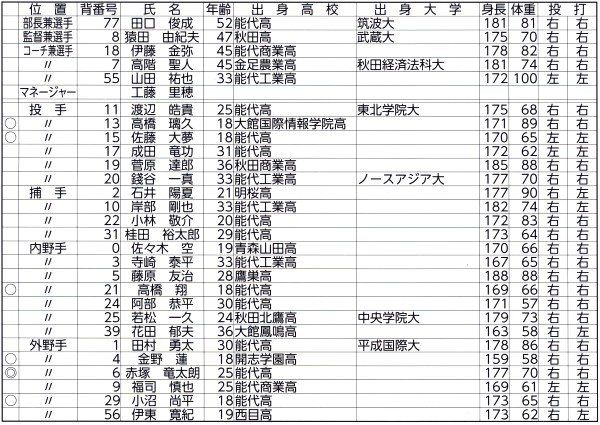 位置 背番号 氏名 年齢 出身高校 出身大学 身長 体重 投 打
部長兼選手 77 田口 俊成 52 能代高 筑波大 181 81 右 右
監督兼選手 8 猿田 由紀夫 47 秋田高 武蔵大 175 70 右 右
コーチ兼選手 18 伊藤 金弥 45 能代商業高 178 82 右 右
〃 7 高階 聖人 45 金足農業高 秋田経済法科大 181 74 右 右
〃 55 山田 祐也 33 能代工業高 172 100 左 左
マネージャー 工藤 里穂
投手 11 渡辺 皓貴 25 能代高 東北学院大 175 68 右 右
○ 〃 13 高橋 璃久 18 大館国際情報学院高 171 89 右 右
○ 〃 15 佐藤 大夢 18 能代高 170 65 左 左
〃 17 成田 竜功 31 能代高 172 62 左 左
〃 19 菅原 達郎 36 秋田商業高 185 88 右 右
〃 20 錢谷 一真 33 能代工業高 ノースアジア大 177 70 右 右
捕手 2 石井 陽夏 21 明桜高 177 90 右 左
〃 10 岸部 剛也 33 能代工業高 182 74 右 左
〃 22 小林 敬介 20 能代高 172 83 右 右
〃 31 桂田 裕太郎 29 能代高 173 64 右 右
内野手 0 佐々木 空 19 青森山田高 170 66 右 右
〃 3 寺崎 泰平 33 能代工業高 167 65 右 左
〃 5 藤原 友治 28 鷹巣高 188 88 右 右
○ 〃 21 高橋 翔 18 能代高 169 66 右 右
〃 24 阿部 恭平 30 能代高 171 57 右 右
〃 25 若松 一久 24 秋田北鷹高 中央学院大 179 73 右 右
〃 39 花田 郁夫 36 大館鳳鳴高 163 58 右 左
外野手 1 田村 勇太 30 能代高 平成国際大 178 86 右 右
○ 〃 4 金野 蓮 18 開志学園高 159 58 右 右
◎ 〃 6 赤塚 竜太朗 25 能代高 177 70 右 右
〃 9 福司 慎也 25 能代商業高 169 61 左 左
○ 〃 29 小沼 尚平 18 能代高 173 65 右 右
〃 56 伊東 寛紀 19 西目高 173 62 右 左